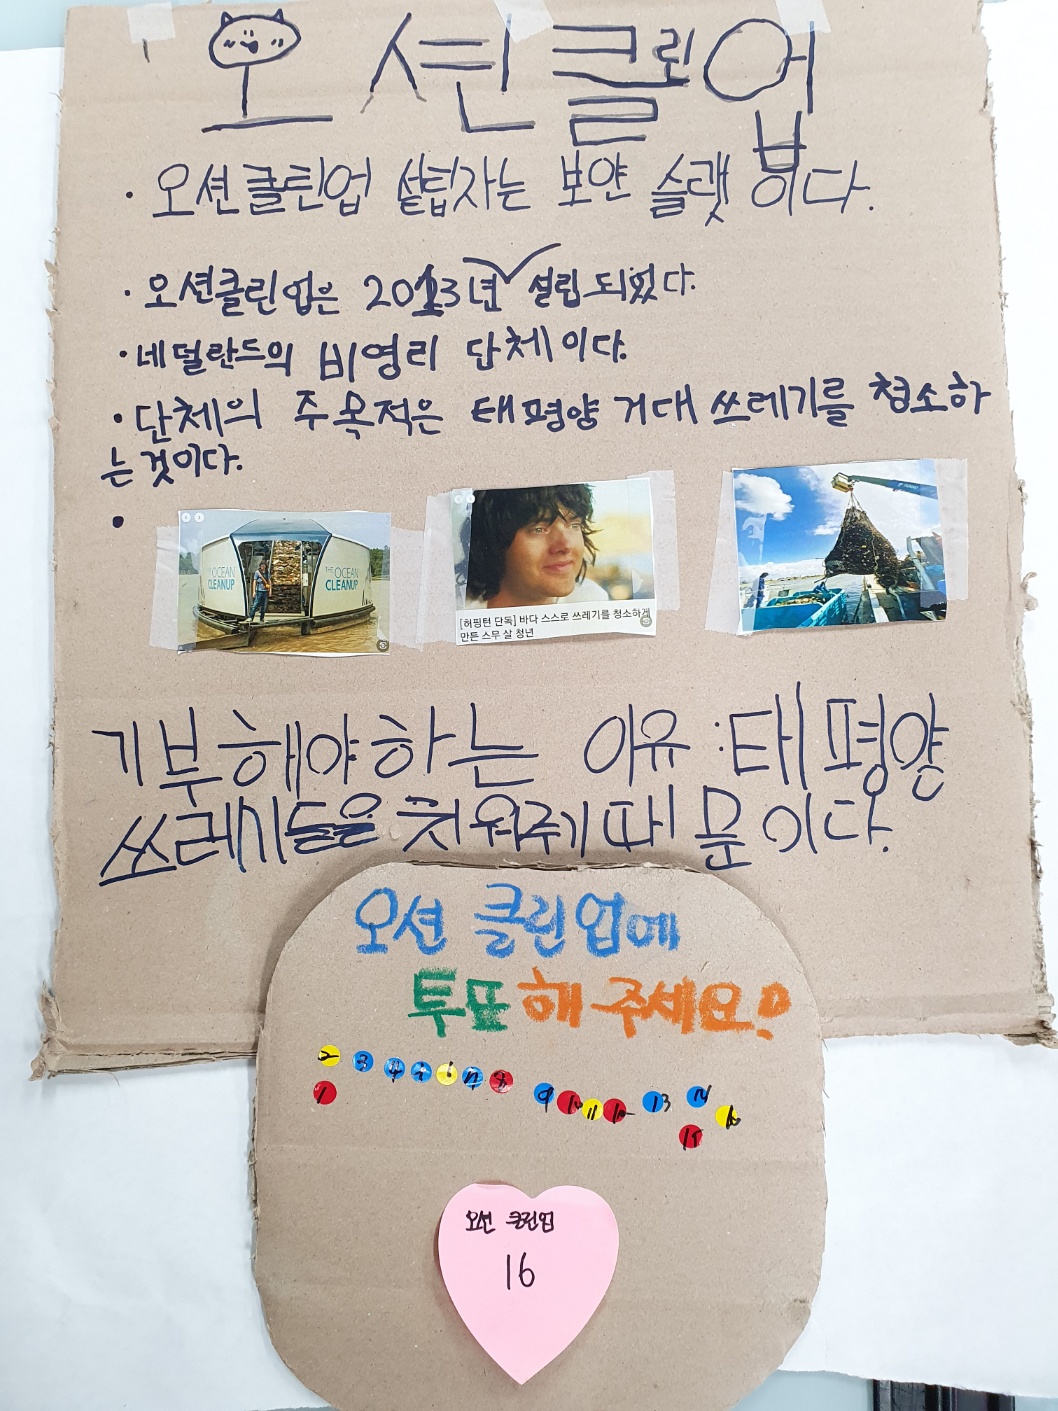 오션클린업
· 오션클린업 섩립자는 보얀 슬랫 이다.
· 오션클린업은 2013년 설립되었다.
· 네덜란드의 비영리 단체이다.
· 단체의 주목적은 태평양 거대 쓰레기를 청소하
는 것이다.
·
THE OCEAN CLEANUP
THE OCEAN CLEANUP
[허핑턴 단독] 바다 스스로 쓰레기를 청소하게
만든 스무 살 청년
기부해야하는 이유 : 태평양
쓰레기들을 치워주기 때문이다.
오션 클린업에
투표해주세요!
2 3 4 5 6 7 8
1 9 10 11 12 13 14
15 16
오션 클린업
16